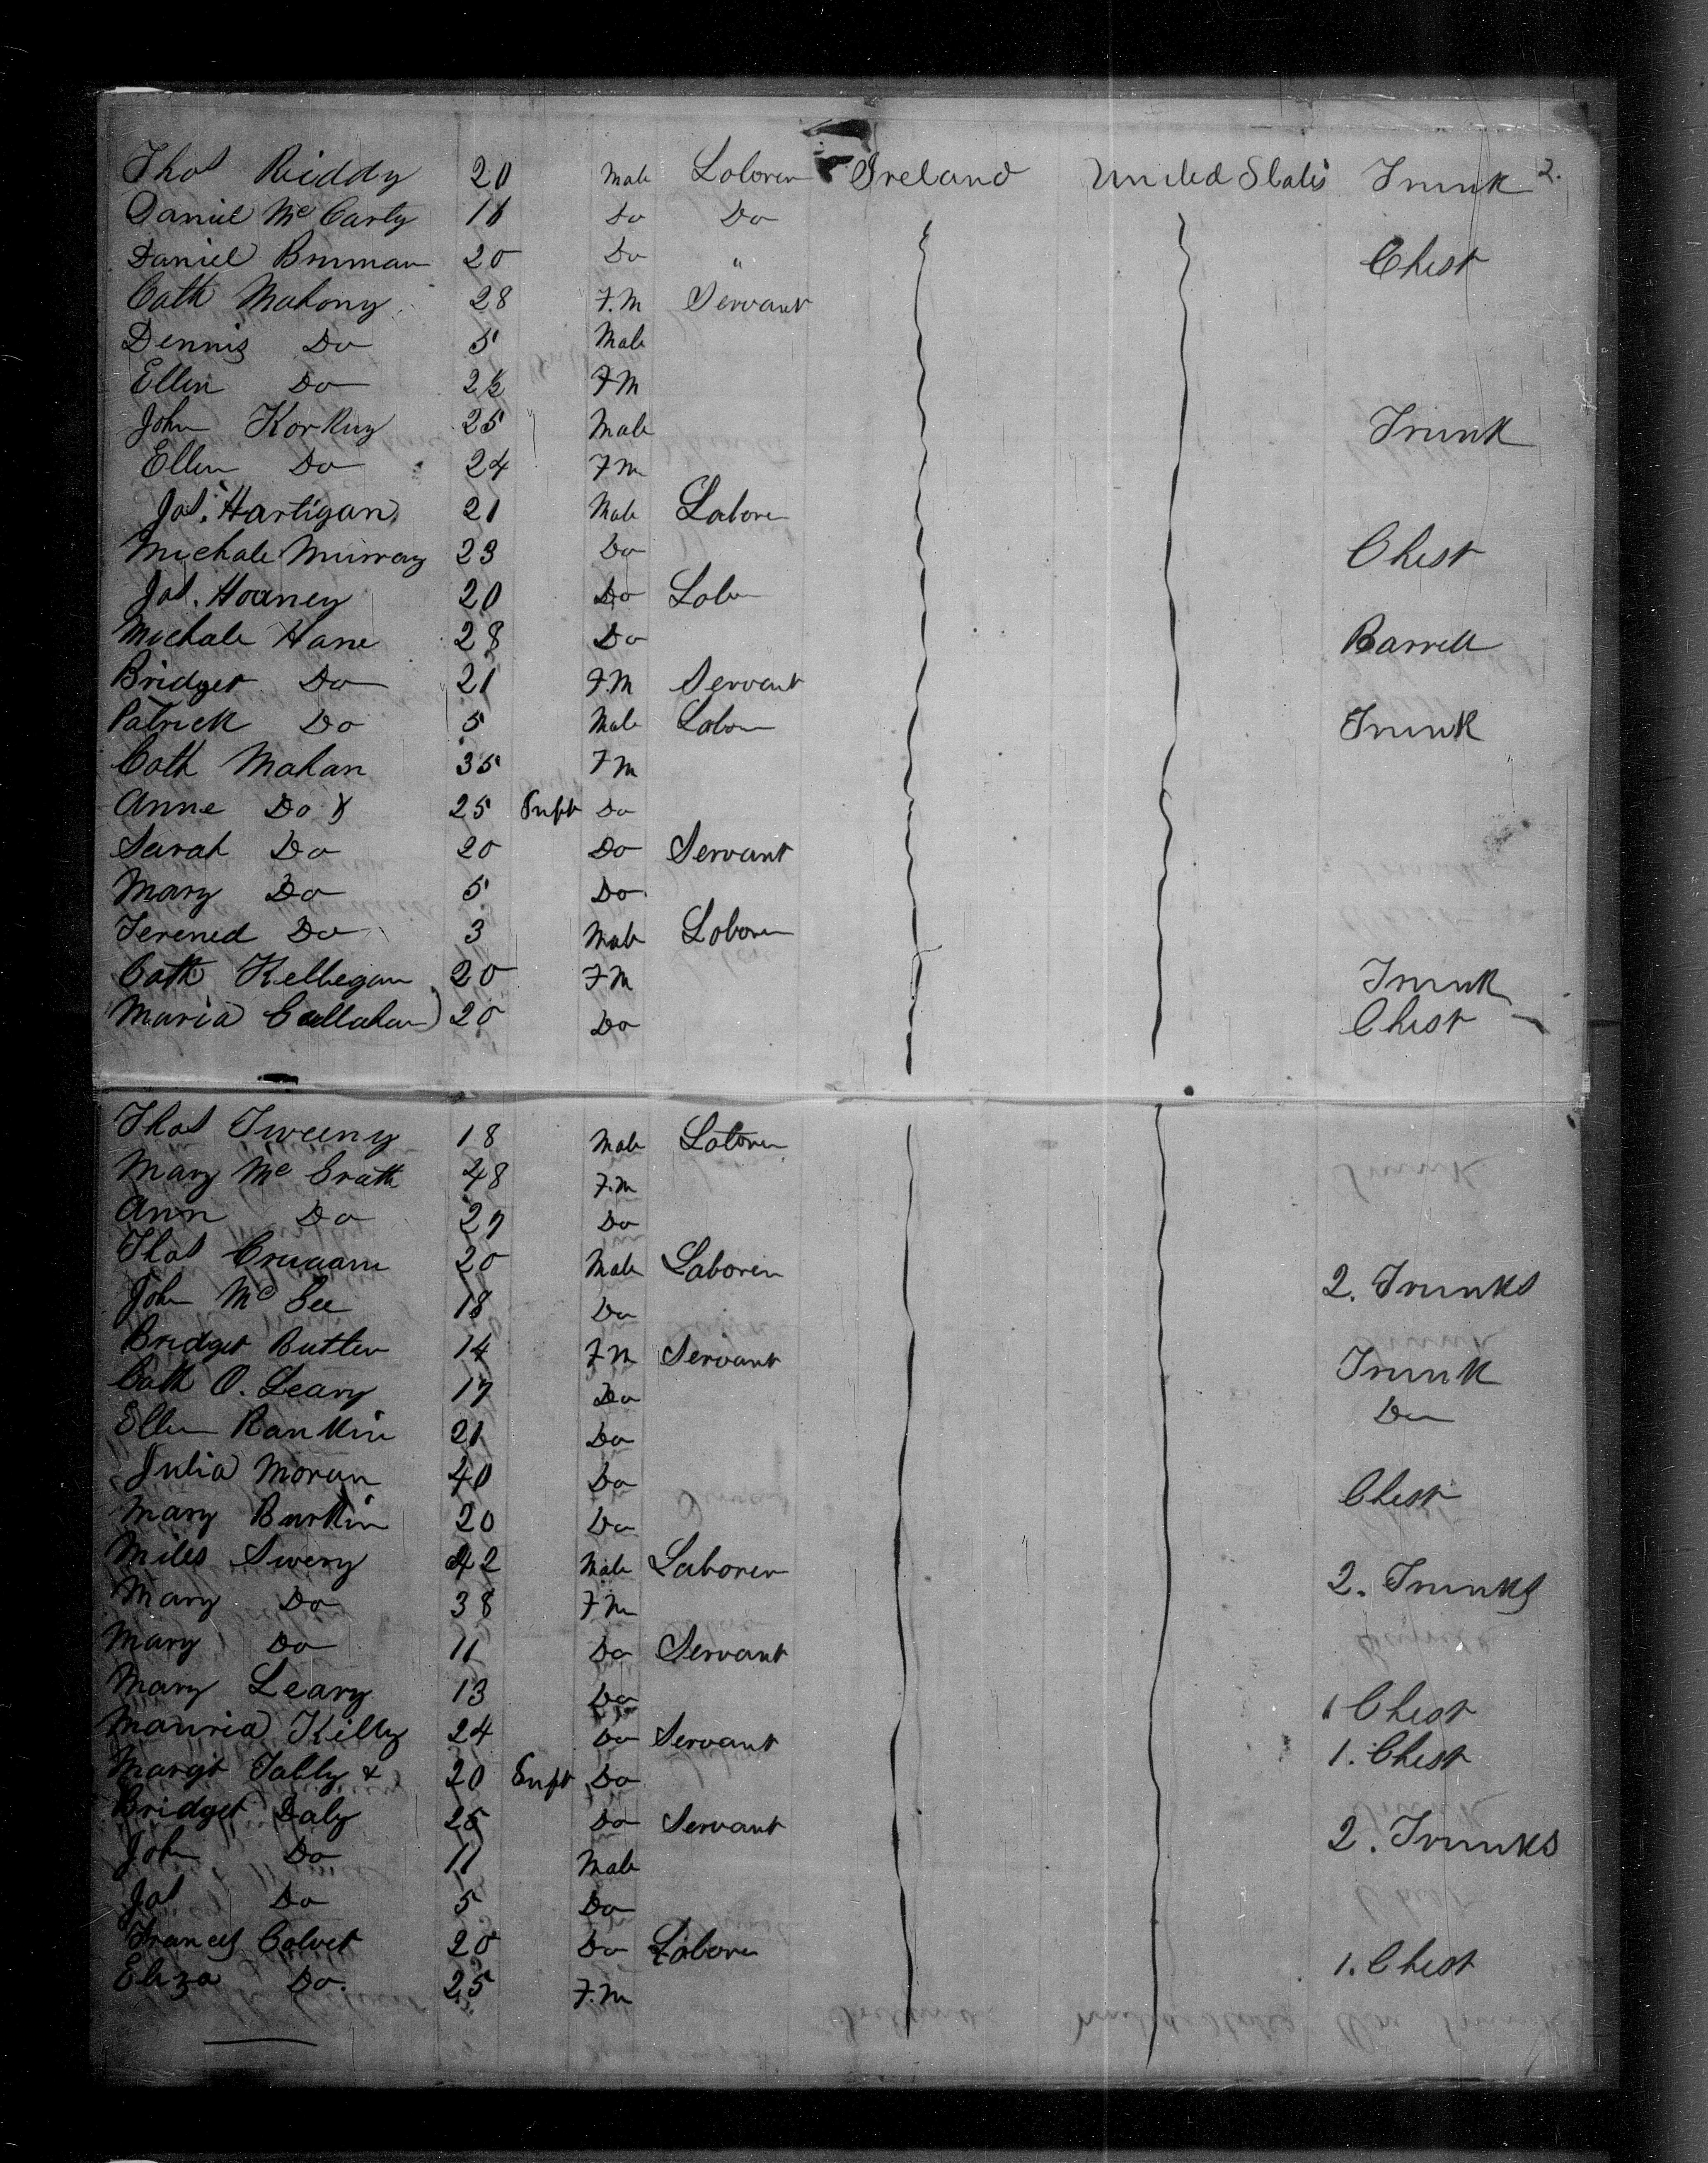 Thos Riddy 20 Male Laborer Ireland United States Trunk 2.
Daniel Mc Carty 18 Do Do
Daniel Brnman 20 Do " Chest
Cath Mahony 28 F.M Servant
Dennis Do 5 Male
Ellen Do 2½ FM
John Korkuy 25 " Male Trunk
Ellen Do 24 FM
Jas. Hartigan 21 Male Labore
Michale Murray 23 Do Chest
Jas. Hoaney 20 Do Labor
Michale Hane 28 Do Barrell
Bridget Do 21 F.M Servant
Patrick Do 5 Male Labor Trunk
Cath Mahan 35 FM
Anne Do & 25 Inft Do
Sarah Do 20 Do Servant
Mary Do 5 Do
Terened Do 3 Male Laborer
Cath Kellegan 20 FM Trunk
Maria Callahan 20 Do Chest
Thos Tweeny 18 Male Laborer
Mary Mc Grath 48 F.M
Ann Do 27 Do
Thos 20 Male Laborer 2. Trunks
John Mc Gee 18 Do
Bridget Butler 14 FM Servant Trunk
Cath O. Leary 17 Do Do
Ellen Rankin 21 Do
Julia Moran 40 Do Chest
Mary Burkin 20 Do
Miles Swery 42 Male Laborer 2. Trunks
Mary Do 38 FM
Mary Do 11 Do Servant
Mary Leary 13 Do 1 Chest
Mauria Killy 24 Do Servant 1. Chest
Margt Tally & 20 Inft Do
Bridget Daly 25 Do Servant 2. Trunks
John Do 11 Male
Jas Do 5 Do
Frances Calvet 20 Do Laborer 1. Chest
Eliza Do. 25 F.M